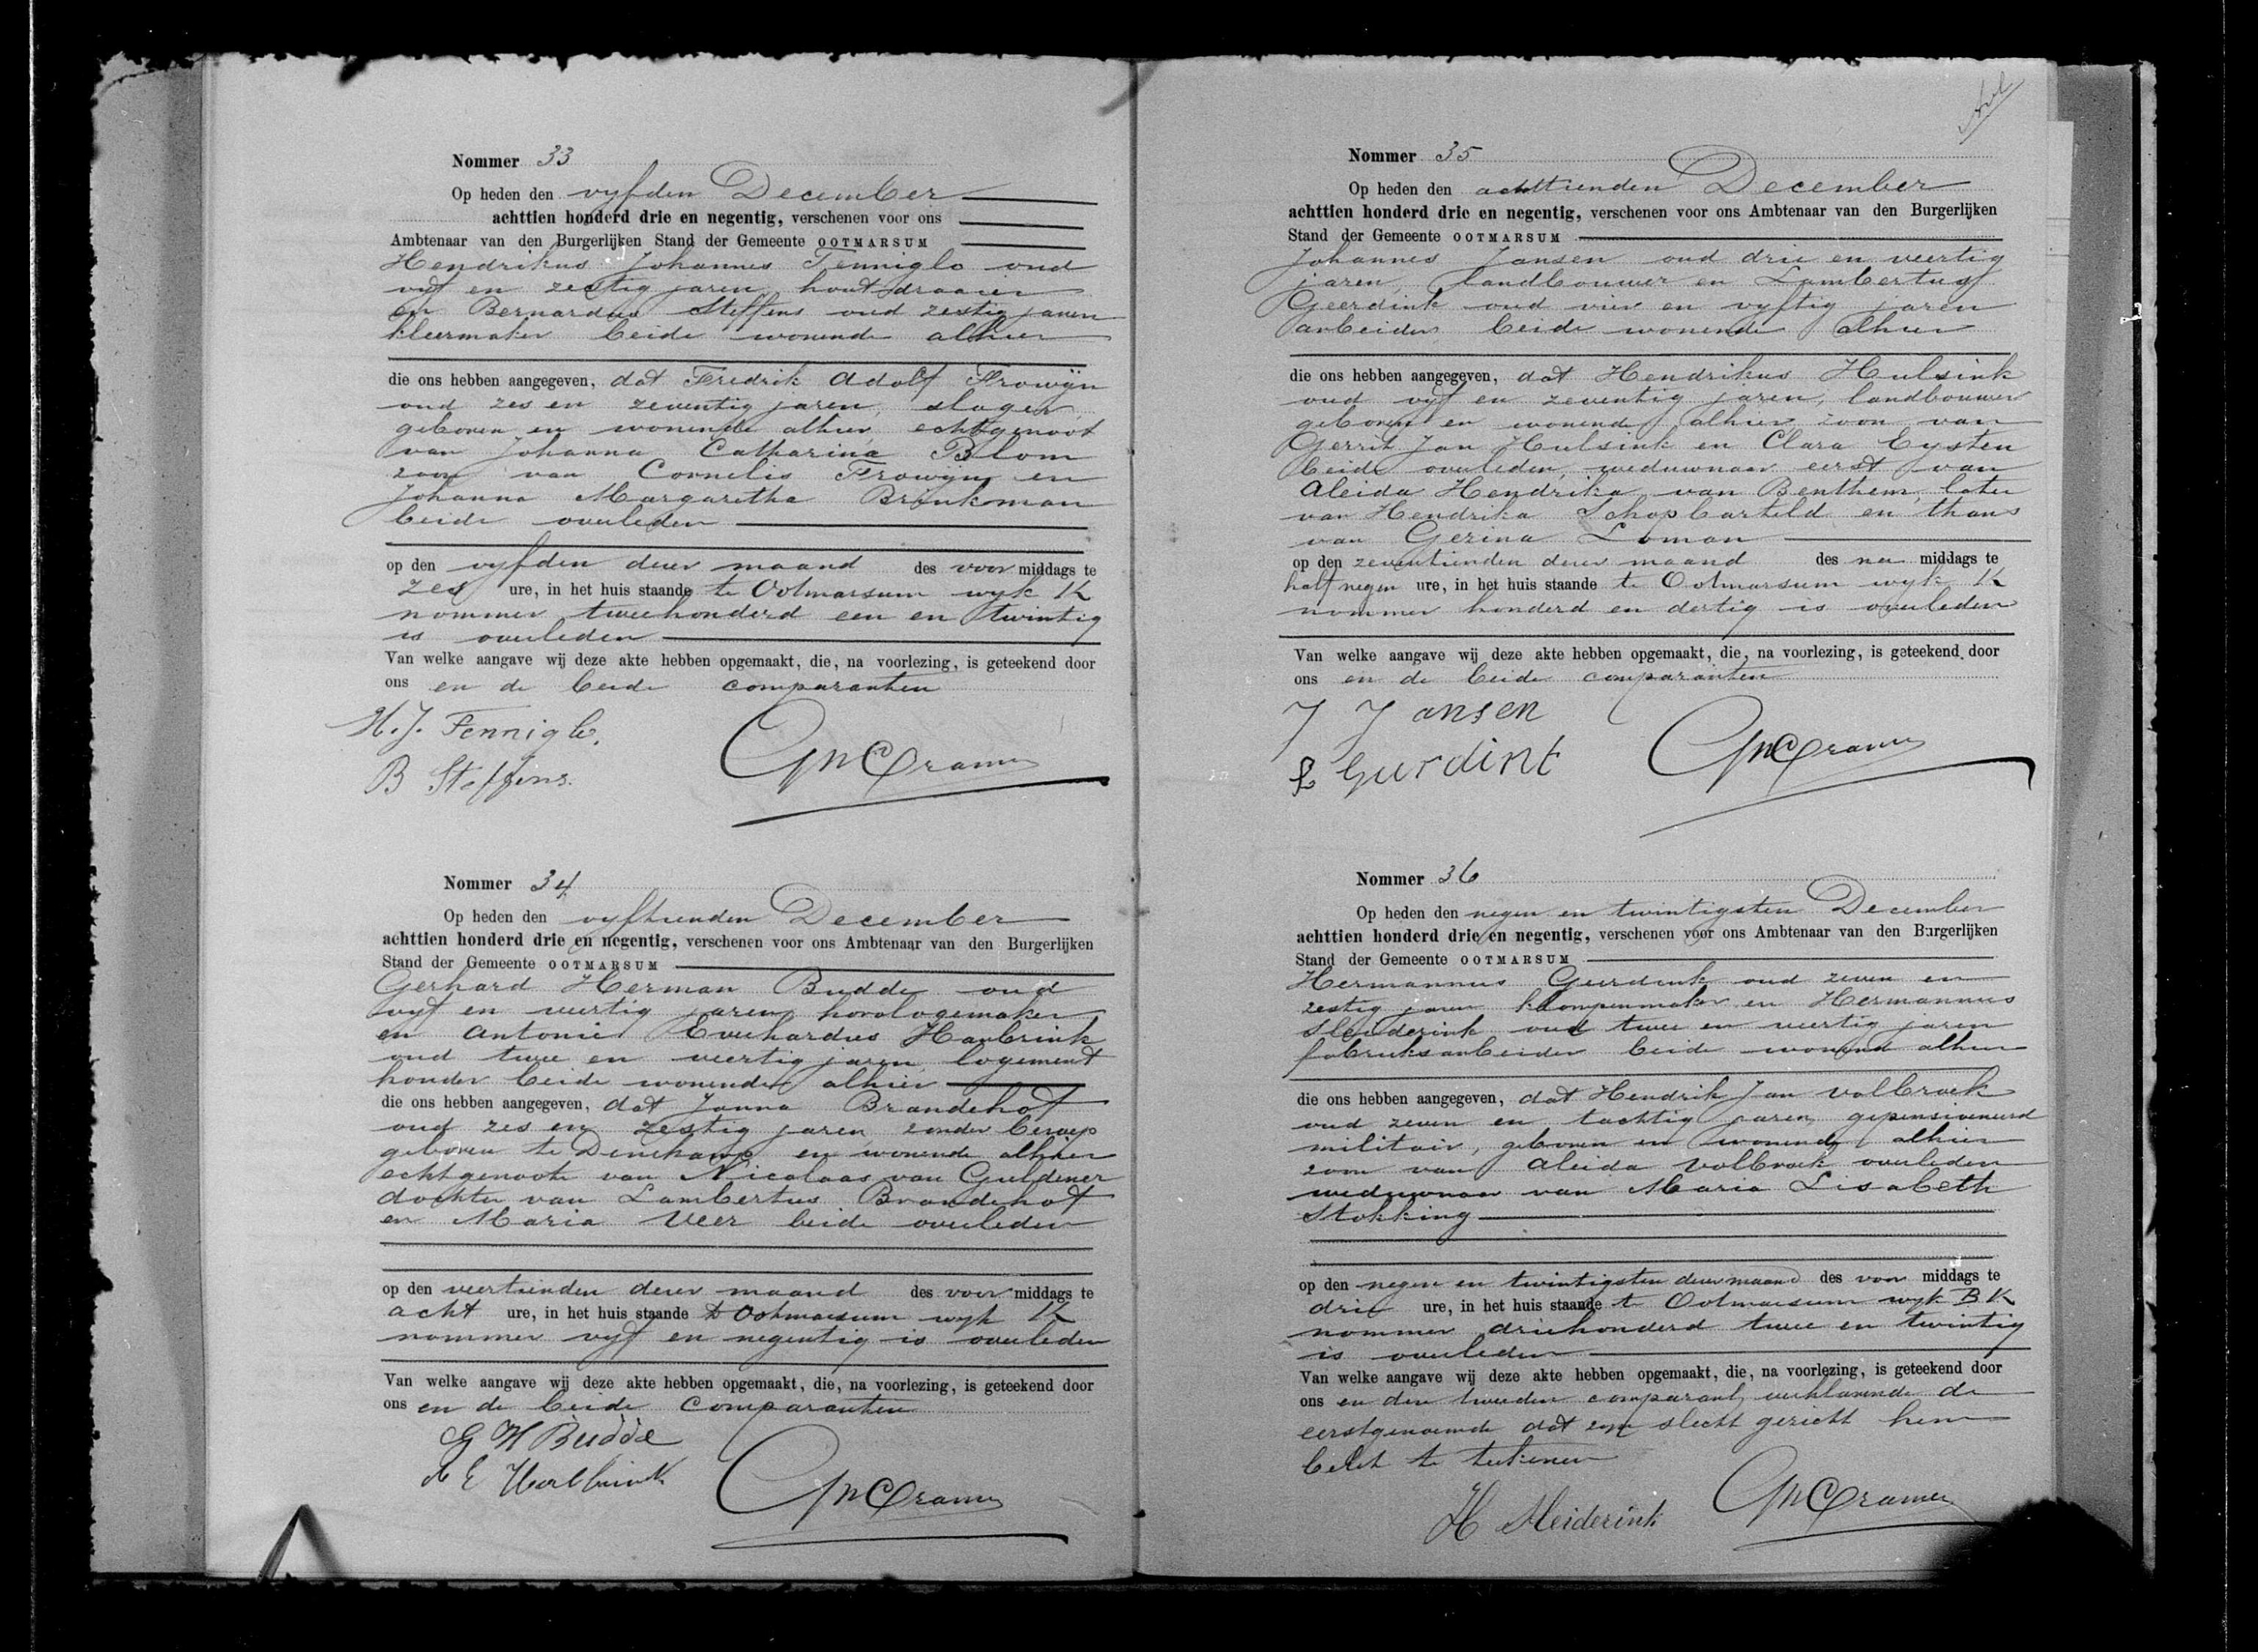 Nommer 33
Op heden den vyfden December
achttien honderd drie en negentig, verschenen voor ons
Ambtenaar van den Burgerlijken Stand der Gemeente OOTMARSUM
Hendrikus Johannes Fenniglo oud
vyf en zestig jaren houtdraaier
en Bernardus Steffens oud zestig jaren
kleermaker beide wonende alhier
die ons hebben aangegeven, dat Fredrik Adolf Frowijn
oud zes en zeventig jaren, slager
geboren en wonende alhier echtgenoot
van Johanna Catharina Blom
zoon van Cornelis Frowijn en
Johanna Margaretha Brinkman
beide overleden
op den vyfden dezer maand des voor middags te
zes ure, in het huis staande te Ootmarsum wyk K
nommer tweehonderd een en twintig
is overleden
Van welke aangave wij deze akte hebben opgemaakt, die, na voorlezing, is geteekend door
ons en de beide comparanten
H. J. Fenniglo.
B Steffens.
Cramer
Nommer 34
Op heden den vyftienden December
achttien honderd drie en negentig, verschenen voor ons Ambtenaar van den Burgerlijken
Stand der Gemeente OOTMARSUM
Gerhard Herman Budde oud
vyf en veertig jaren horologemaker
en Antonie Everhardus Harbrink
oud twee en veertig jaren logement
houder beide wonende alhier
die ons hebben aangegeven, dat Janna Brandehof
oud zes en zestig jaren zonder beroep
geboren te Denekamp en wonende alhier
echtgenoote van Nicolaas van Guldener
dochter van Lambertus Brandehof
en Maria Veer beide overleden
op den veertienden dezer maand des voor middags te
acht ure, in het huis staande te Ootmarsum wyk K
nommer vyf en negentig is overleden
Van welke aangave wij deze akte hebben opgemaakt, die, na voorlezing, is geteekend door
ons en de beide comparanten
G H Budde
A E Harbrink
Cramer
Nommer 35
Op heden den achttienden December
achttien honderd drie en negentig, verschenen voor ons Ambtenaar van den Burgerlijken
Stand der Gemeente OOTMARSUM
Johannes Jansen oud drie en veertig
jaren, landbouwer en Lambertus
Geerdink oud vier en vyftig jaren
arbeider beide wonende alhier
die ons hebben aangegeven, dat Hendrikus Hulsink
oud vyf en zeventig jaren, landbouwer
geboren en wonende alhier zoon van
Gerrit Jan Hulsink en Clara Eysten
beide overleden, weduwnaar eerst van
Aleida Hendrika van Benthem, later
van Hendrika Schopbarteld en thans
van Gezina Loman
op den zeventienden dezer maand des na middags te
half negen ure, in het huis staande te Ootmarsum wyk K
nommer honderd en dertig is overleden
Van welke aangave wij deze akte hebben opgemaakt, die, na voorlezing, is geteekend door
ons en de beide comparanten
J Jansen
L Gurdint
Cramer
Nommer 36
Op heden den negen en twintigsten December
achttien honderd drie en negentig, verschenen voor ons Ambtenaar van den Burgerlijken
Stand der Gemeente OOTMARSUM
Hermannus Geerdink oud zeven en
zestig jaren klompenmaker en Hermannus
Sleiderink oud twee en veertig jaren
fabrieksarbeider beide wonend alhier
die ons hebben aangegeven, dat Hendrik Jan Volbroek
oud zeven en tachtig jaren, gepensioneerd
militair, geboren en wonende alhier
zoon van Aleida Volbroek overleden
weduwnaar van Maria Lisabeth
Stokking
op den negen en twintigsten dezer maand des voor middags te
drie ure, in het huis staande te Ootmarsum wyk B K
nommer driehonderd twee en twintig
is overleden
Van welke aangave wij deze akte hebben opgemaakt, die, na voorlezing, is geteekend door
ons en den tweeden comparant, verklarende de
eerstgenoemde dat zyn slecht gezicht hem
belet te teekenen
H Sleiderink
Cramer